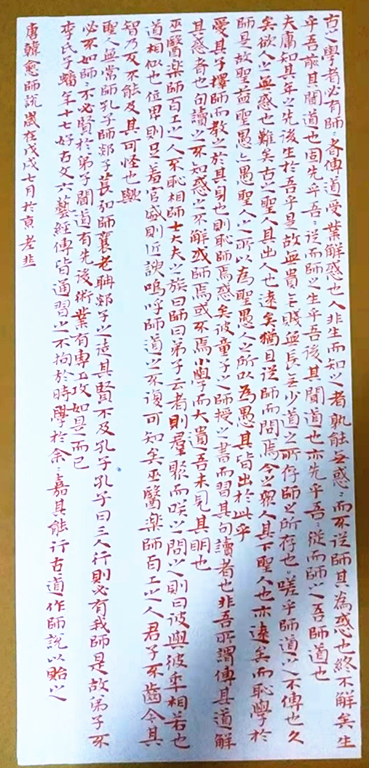 古之學者必有師々者傳道受業解惑也人非生而知之者孰能無惑々而不從師其為惑也終不解矣生
乎吾前其聞道也固先乎吾々從而師之生乎吾後其聞道也亦先乎吾々從而師之吾師道也
夫庸知其年之先後生於吾乎是故無貴無賤無長無少道之所存師之所存也嗟乎師道之不傳也久
矣欲人之無惑也難矣古之聖人其出人也遠矣猶且從師而問焉今之眾人其下聖人也亦遠矣而恥學於
師是故聖益聖愚益愚聖人之所以為聖愚人之所以為愚其皆出於此乎
愛其子擇師而教之於其身也則恥師焉惑矣彼童子之師授之書而習其句讀者也非吾所謂傳其道解
其惑者也句讀之不知惑之不解或師焉或不焉小學而大遺吾未見其明也
巫醫樂師百工之人不恥相師士大夫之族曰師曰弟子云者則群聚而笑之問之則曰彼與彼年相若也
道相似也位卑則足羞官盛則近諛嗚呼師道之不復可知矣巫醫樂師百工之人君子不齒今其
智乃反不能及其可怪也歟
聖人無常師孔子師郯子萇弘師襄老聃郯子之徒其賢不及孔子孔子曰三人行則必有我師是故弟子不
必不如師師不必賢於弟子聞道有先後術業有專攻如是而已
李氏子蟠年十七好古文六藝經傳皆通習之不拘於時學於余々嘉其能行古道作師說以貽之
唐韓愈師說歲在戊戌七月於京老韭